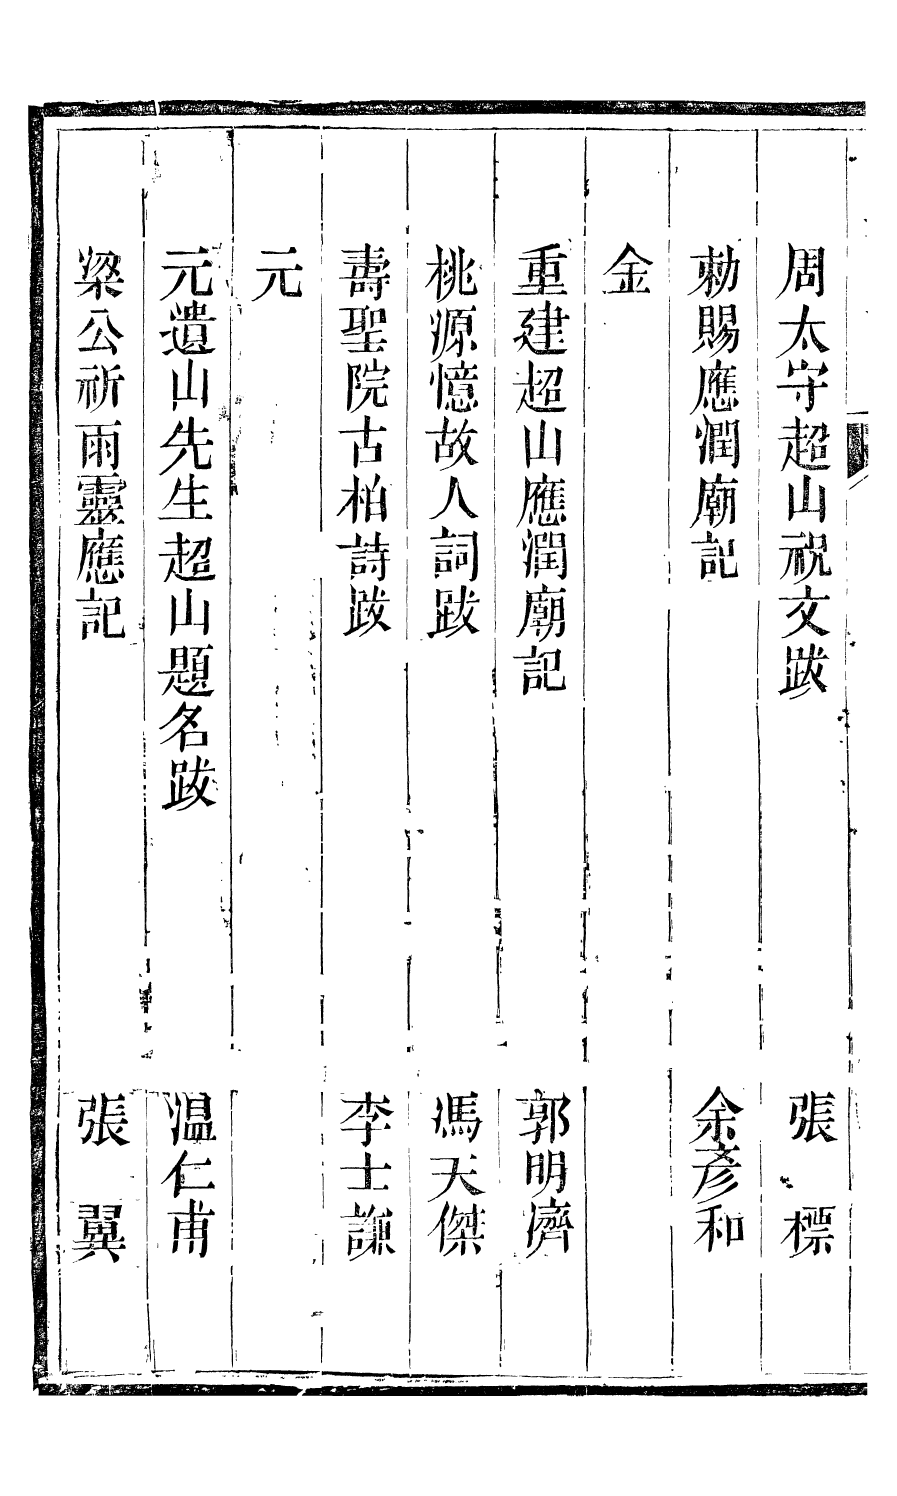 周太守超山祝文跋　張標
勅賜應潤廟記　余彥和
金
重建超山應潤廟記　郭明濟
桃源憶故人詞跋　馮天傑
壽聖院古柏詩跋　李士謙
元
元遺山先生超山題名跋　温仁甫
梁公祈雨靈應記　張翼